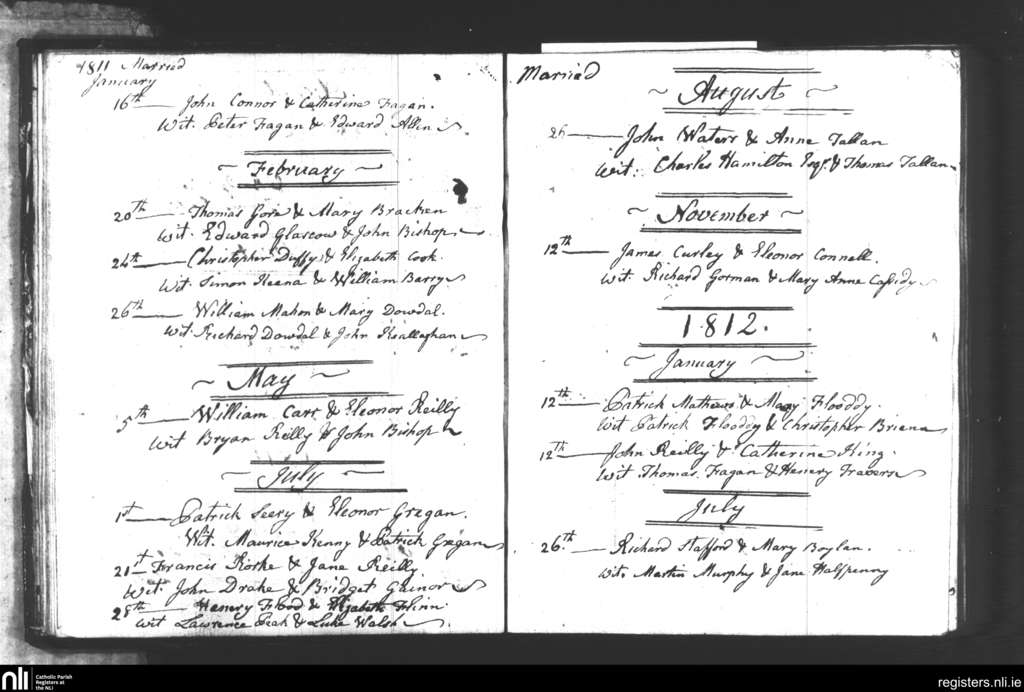 1811 Married
January
16th John Connor & Catherine Fagan.
Wit. Peter Fagan & Edward Allen
February
20th Thomas Gore & Mary Bracken
Wit. Edward Glascow & John Bishop
24th Christopher Duffy & Elizabeth Cook.
Wit. Simon Keena & William Barry
26th William Mahon & Mary Dowdal.
Wit. Richard Dowdal & John Keallaghan
May
5th William Carr & Eleonor Reilly
Wit Bryan Reilly & John Bishop
July
1st Patrick Seery & Eleonor Gregan.
Wit. Maurice Kenny & Patrick Gregan
21st Francis Rorke & Jane Reilly
Wit. John Drake & Bridget Gainor
28th Henery Flood & Elizabeth Flinn.
Wit Lawrence & Luke Walsh
Married
August
26 John Waters & Anne Tallan
Wit. Charles Hamilton Esqr. & Thomas Tallan
November
12th James Curley & Eleonor Connell.
Wit. Richard Gorman & Mary Anne Cassidy
1812.
January
12th Patrick Mathews & Mary Flooddy.
Wit Patrick Flooddy & Christopher Briene
12th John Reilly & Catherine King.
Wit. Thomas Fagan & Henery Travers
July
26th Richard Stafford & Mary Boylan.
Wit. Martin Murphy & Jane Halfpenny
nli Catholic Parish
Registers at
the NLI
registers.nli.ie